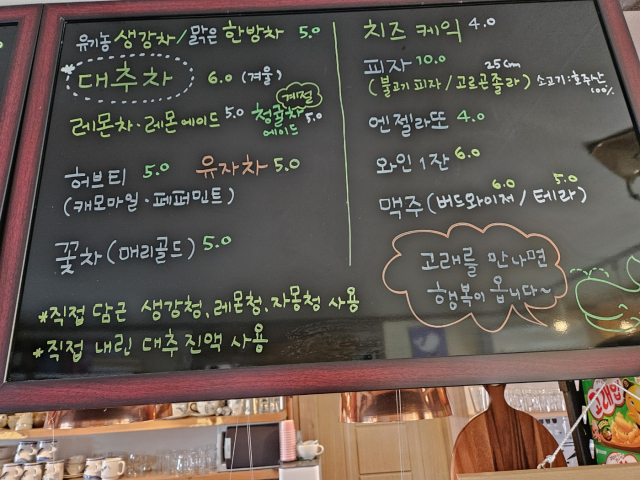 유기농 생강차/맑은 한방차 5.0
*대추차 6.0 (겨울)
계절
레몬차·레몬에이드 5.0 청귤차 5.0
에이드
허브티 5.0 유자차 5.0
(캐모마일·페퍼민트)
꽃차(매리골드) 5.0
*직접 담근 생강청, 레몬청, 자몽청 사용
*직접 내린 대추진액 사용
치즈 케익 4.0
피자 10.0 25cm
(불고기피자/고르곤졸라) 소고기:호주산
100%
엔젤라또 4.0
와인 1잔 6.0
6.0 5.0
맥주(버드와이저/테라)
고래를 만나면
행복이 옵니다~
고래밥